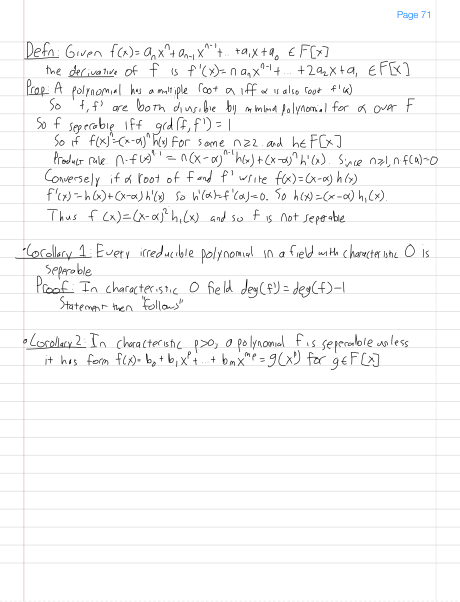 Page 71
Defn: Given f(x)= aₙxⁿ+aₙ₋₁xⁿ⁻¹+...+a₁x+a₀ ∈ F[x]
the derivative of f is f'(x)= n aₙxⁿ⁻¹+...+2a₂x+a₁ ∈ F[x]
Prop: A polynomial has a multiple root α iff α is also root f'(α)
So f, f' are both divisible by minimal polynomial for α over F
So f seperable iff gcd(f, f') = 1
So if f(x)=(x-α)ⁿ h(x) for some n≥2 and h∈F[x]
Product rule = n(x-α)ⁿ⁻¹h(x)+(x-α)ⁿ h'(x). Since n≥1,
Conversely if α root of f and f' write f(x)=(x-α) h(x)
f'(x)=h(x)+(x-α)h'(x) so h(α)=f'(α)=0. So h(x)=(x-α) h₁(x)
Thus f(x)=(x-α)² h₁(x) and so f is not seperable
•Corollary 1: Every irreducible polynomial in a field with characteristic 0 is
seperable
Proof: In characteristic 0 field deg(f')=deg(f)-1
Statement then "follows"
•Corollary 2: In characteristic p>0, a polynomial f is seperable unless
it has form f(x)= b₀+b₁xᵖ+...+bₘxᵐᵖ=g(xᵖ) for g∈F[x]